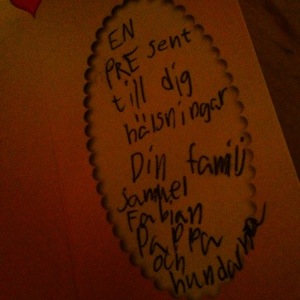 EN
PRE sent
till dig
hälsningar
Din familj
Samuel
Fabian
Pappa
och
hundarna